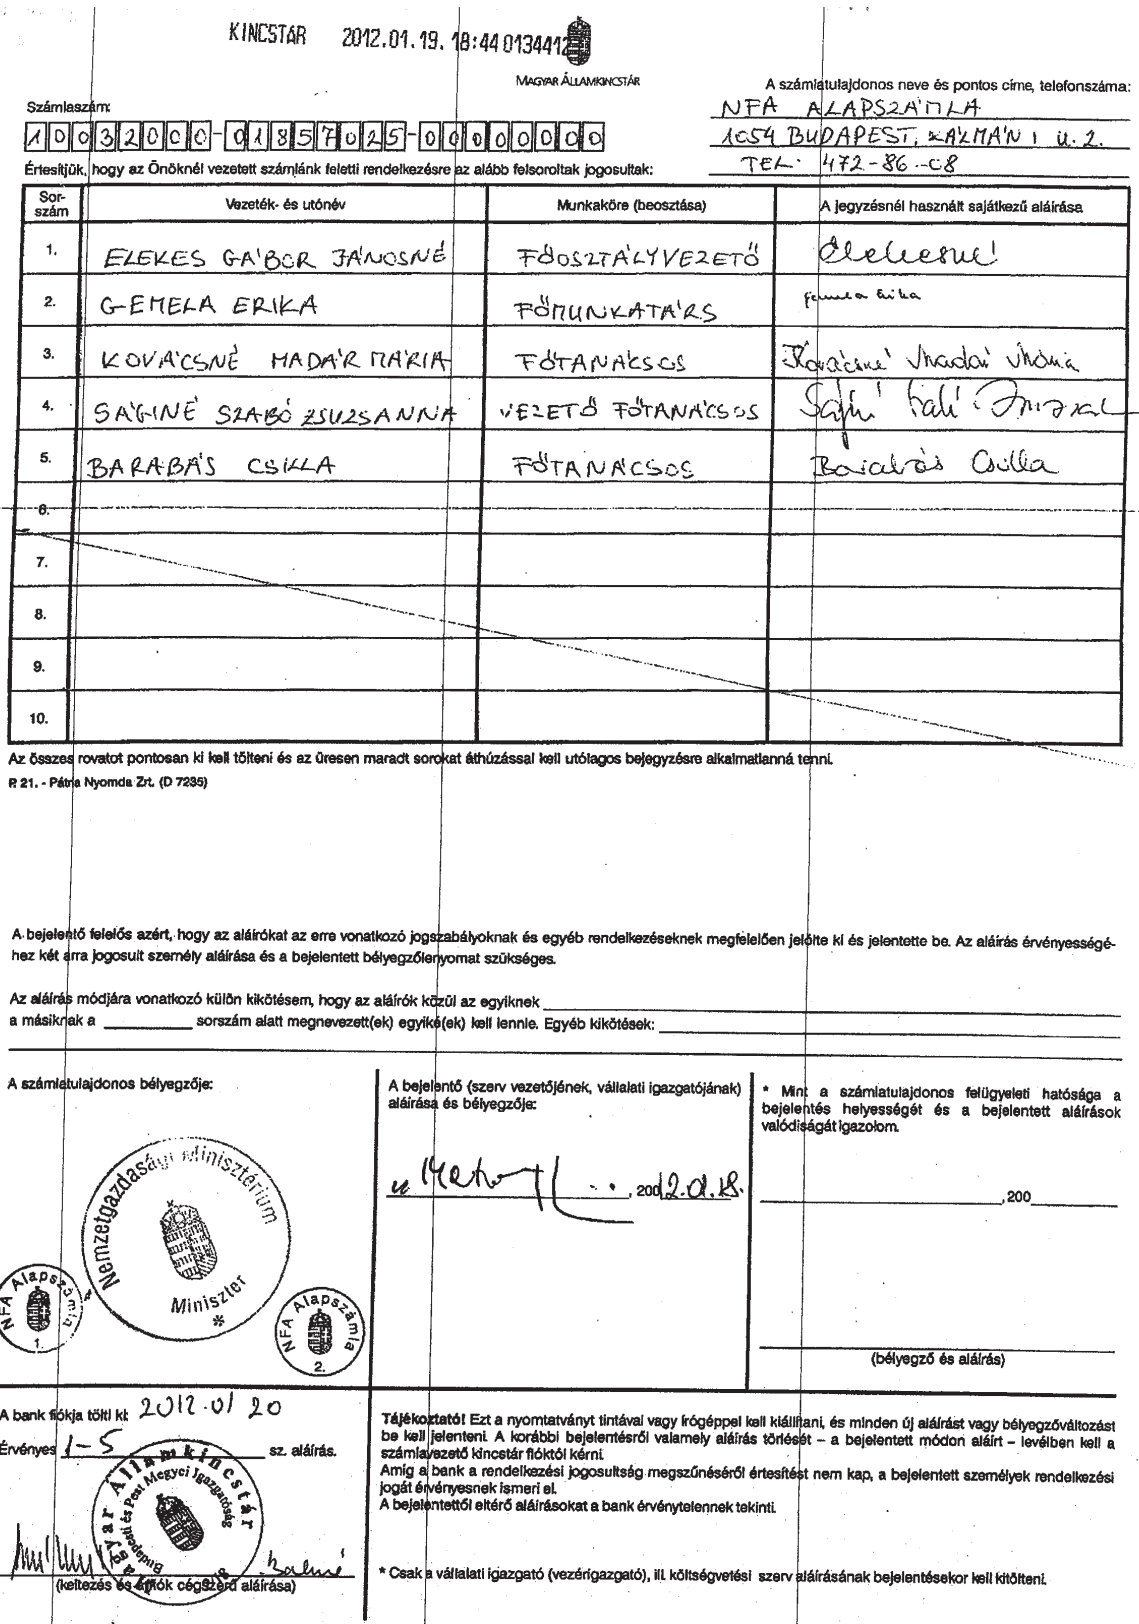 KINCSTÁR 2012.01.19. 18:44 0134412
MAGYAR ÁLLAMKINCSTÁR
A számlatulajdonos neve és pontos címe, telefonszáma:
NFA ALAPSZÁMLA
Számlaszám:
10032000-01857025-00000000
1054 BUDAPEST, KÁLMÁN I U. 2.
TEL: 472-86-08
Értesítjük, hogy az Önöknél vezetett számlánk feletti rendelkezésre az alább felsoroltak jogosultak:
Sor-szám Vezeték- és utónév Munkaköre (beosztása) A jegyzésnél használt sajátkezű aláírása
1. ELEKES GÁBOR JÁNOSNÉ FŐOSZTÁLYVEZETŐ Elekesné
2. GEMELA ERIKA FŐMUNKATÁRS Gemela Erika
3. KOVÁCSNÉ MADÁR MÁRIA FŐTANÁCSOS Kovácsné Madár Mária
4. SÁGINÉ SZABÓ ZSUZSANNA VEZETŐ FŐTANÁCSOS
5. BARABÁS CSILLA FŐTANÁCSOS Barabás Csilla
6.
7.
8.
9.
10.
Az összes rovatot pontosan ki kell tölteni és az üresen maradt sorokat áthúzással kell utólagos bejegyzésre alkalmatlanná tenni.
R. 21. - Pátria Nyomda Zrt. (D 7235)
A bejelentő felelős azért, hogy az aláírókat az erre vonatkozó jogszabályoknak és egyéb rendelkezéseknek megfelelően jelölte ki és jelentette be. Az aláírás érvényességé-
hez két arra jogosult személy aláírása és a bejelentett bélyegzőlenyomat szükséges.
Az aláírás módjára vonatkozó külön kikötésem, hogy az aláírók közül az egyiknek
a másiknak a sorszám alatt megnevezett(ek) egyiké(ek) kell lennie. Egyéb kikötések:
A számlatulajdonos bélyegzője:
Nemzetgazdasági Minisztérium
Miniszter
*
NFA Alapszámla
1.
NFA Alapszámla
2.
A bejelentő (szerv vezetőjének, vállalati igazgatójának)
aláírása és bélyegzője:
, 2002.01.18.
* Mint a számlatulajdonos felügyeleti hatósága a
bejelentés helyességét és a bejelentett aláírások
valódiságát igazolom.
,200
(bélyegző és aláírás)
A bank fiókja tölti ki: 2012.01 20
Érvényes 1-5 sz. aláírás.
Magyar Államkincstár
Budapesti és Pest Megyei Igazgatóság
(keltezés és a fiók cégszerű aláírása)
Tájékoztató! Ezt a nyomtatványt tintával vagy írógéppel kell kiállítani, és minden új aláírást vagy bélyegzőváltozást
be kell jelenteni. A korábbi bejelentésről valamely aláírás törlését – a bejelentett módon aláírt – levélben kell a
számlavezető kincstár fióktól kérni.
Amíg a bank a rendelkezési jogosultság megszűnéséről értesítést nem kap, a bejelentett személyek rendelkezési
jogát érvényesnek ismeri el.
A bejelentettől eltérő aláírásokat a bank érvénytelennek tekinti.
* Csak a vállalati igazgató (vezérigazgató), ill. költségvetési szerv aláírásának bejelentésekor kell kitölteni.